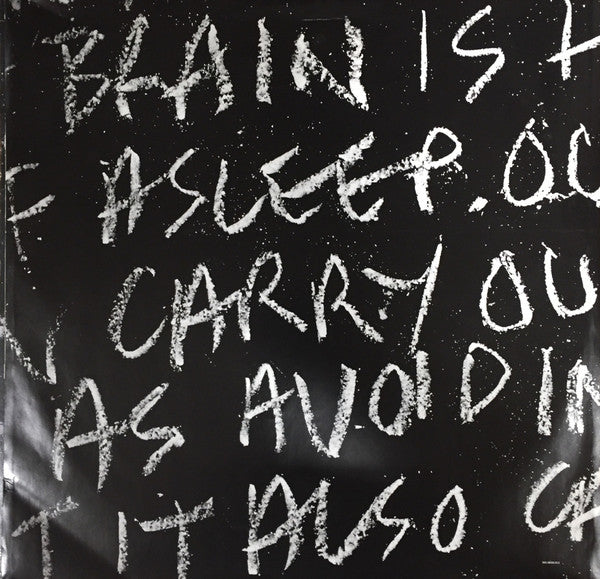 BRAIN IS
F ASLEEP. OU
CARRY OU
AS AVOIDIN
T IT ALSO CA